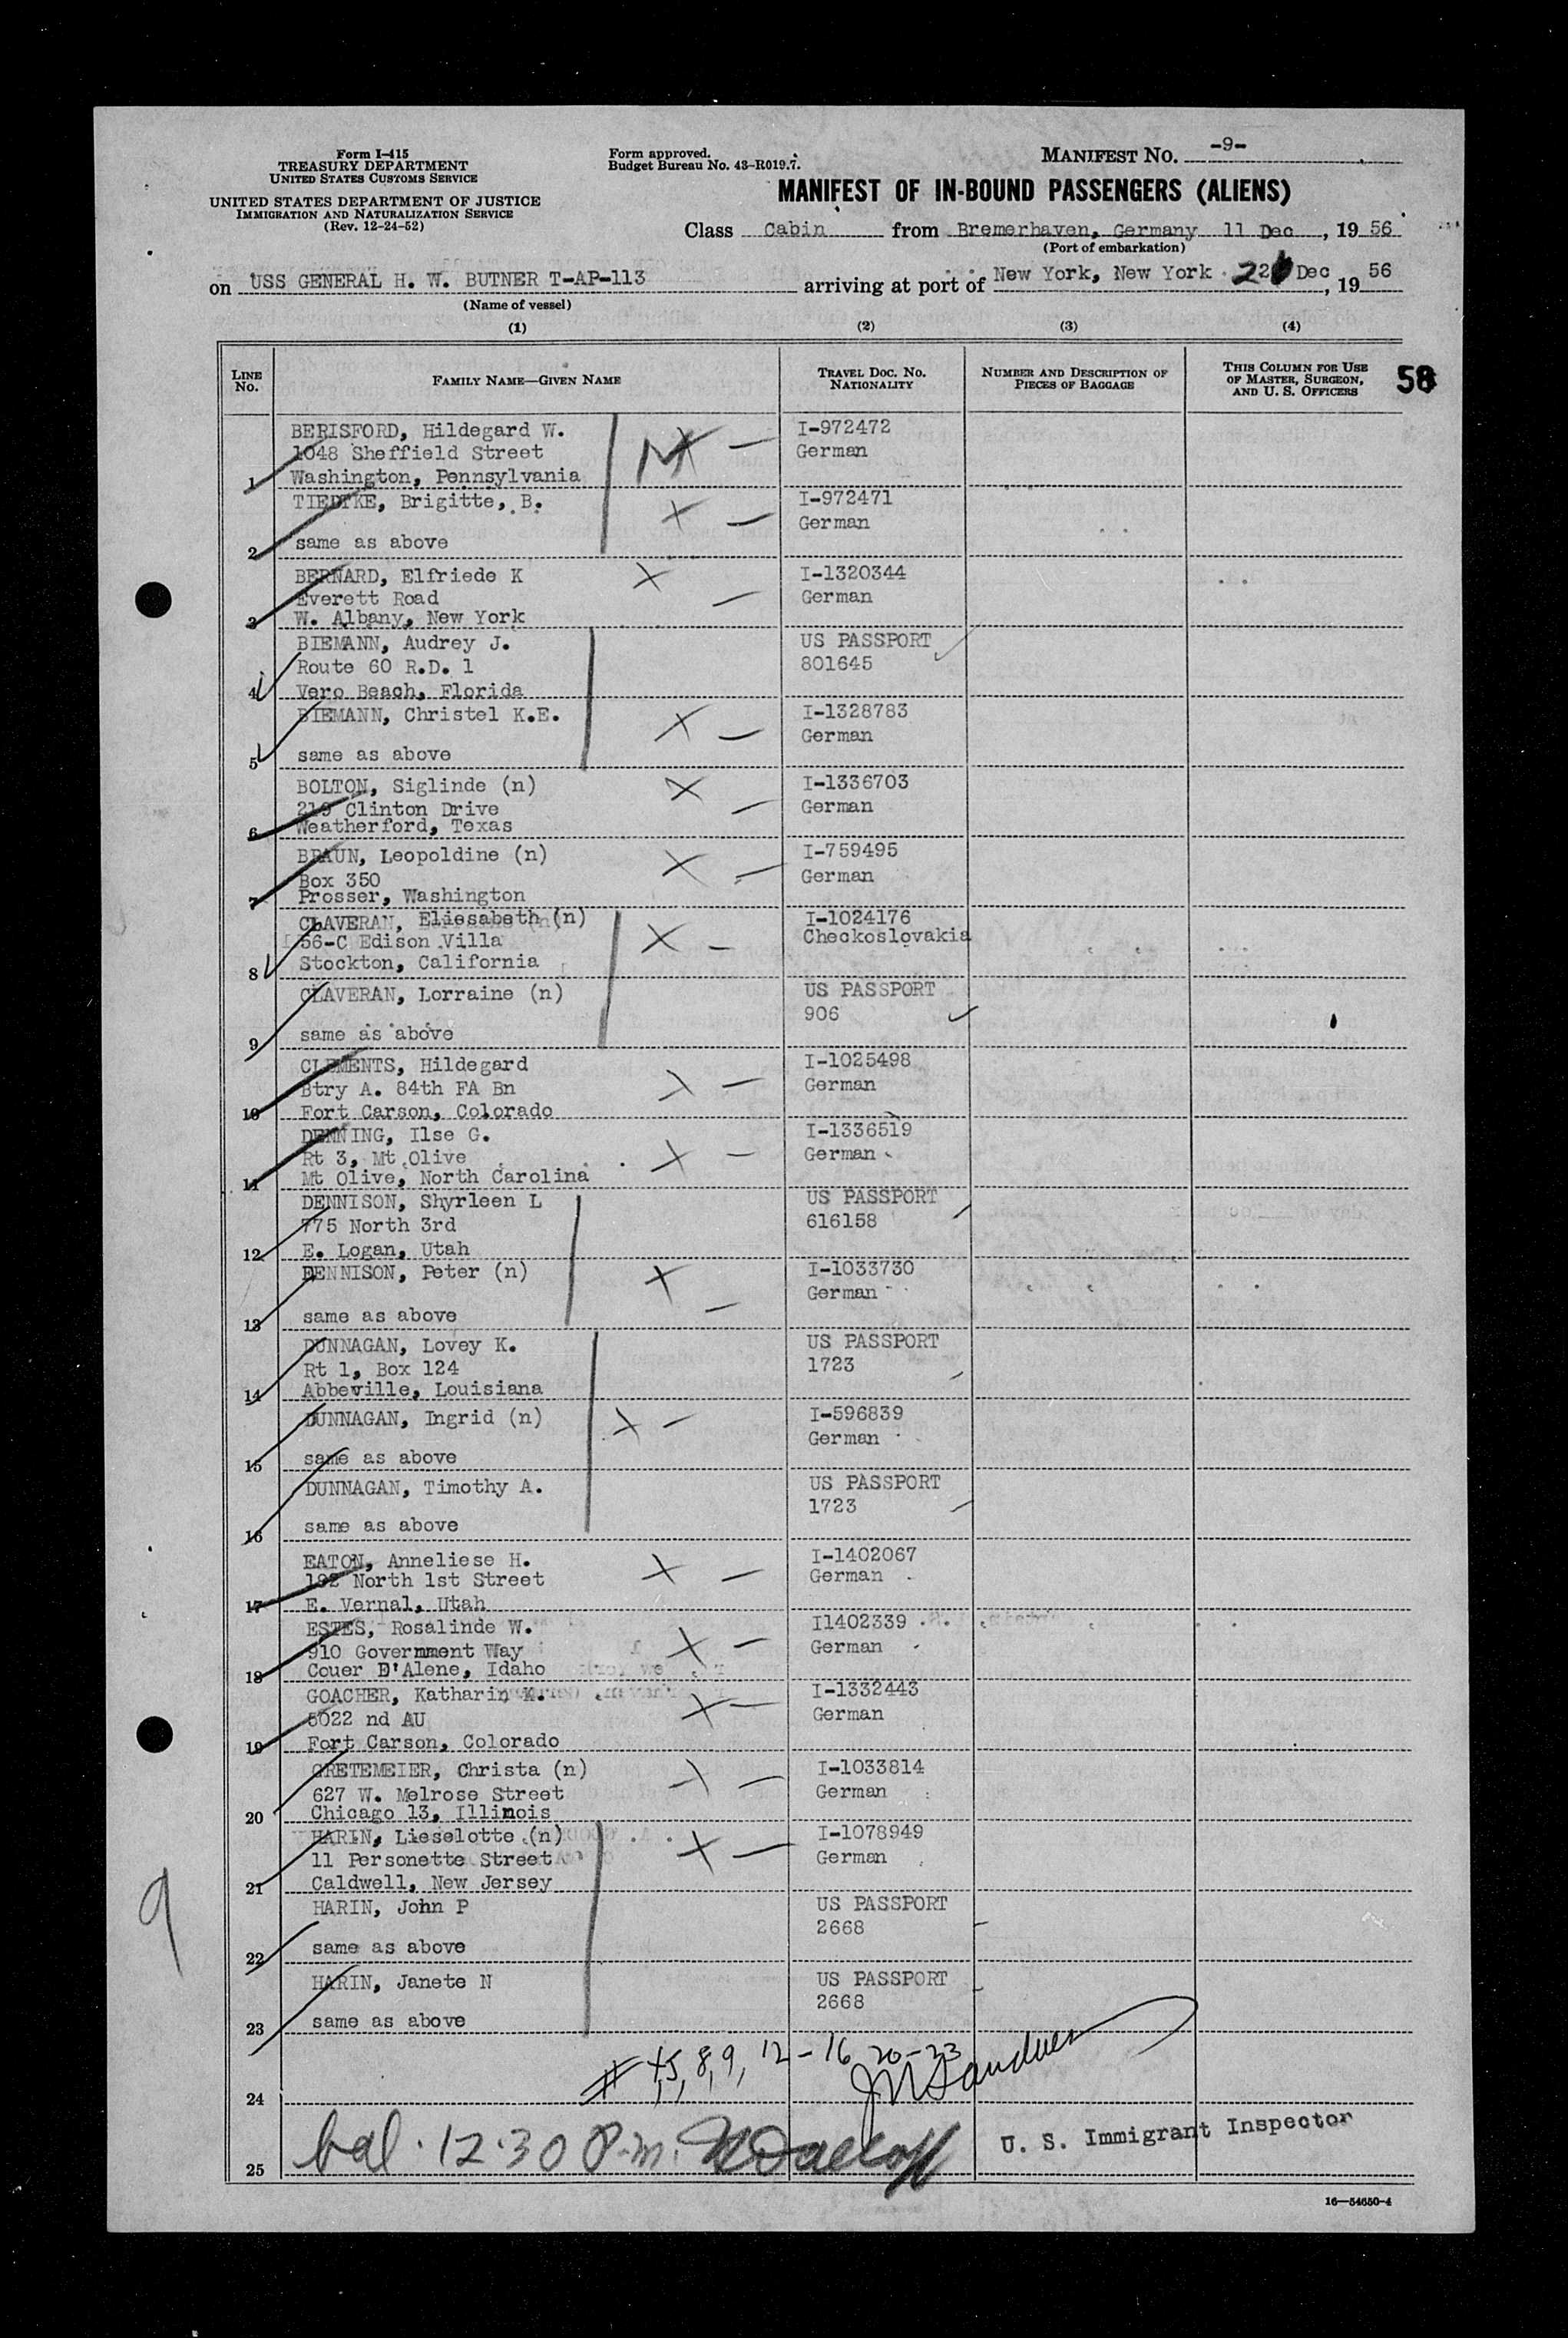 Form I-415
TREASURY DEPARTMENT
UNITED STATES CUSTOMS SERVICE
UNITED STATES DEPARTMENT OF JUSTICE
IMMIGRATION AND NATURALIZATION SERVICE
(Rev. 12-24-52)
Form approved.
Budget Bureau No. 43-R019.7.
MANIFEST NO. -9-
MANIFEST OF IN-BOUND PASSENGERS (ALIENS)
Class Cabin from Bremerhaven, Germany 11 Dec, 19 56
(Port of embarkation)
on USS GENERAL H. W. BUTNER T-AP-113 arriving at port of New York, New York Dec, 19 56
(Name of vessel)
(1) (2) (3) (4)
LINE NO.
FAMILY NAME—GIVEN NAME
TRAVEL DOC. NO. NATIONALITY
NUMBER AND DESCRIPTION OF PIECES OF BAGGAGE
THIS COLUMN FOR USE OF MASTER, SURGEON, AND U. S. OFFICERS
BERISFORD, Hildegard W. I-972472
1048 Sheffield Street German
1 Washington, Pennsylvania
TIEDTKE, Brigitte, B. I-972471
German
2 same as above
BERNARD, Elfriede K I-1320344
Everett Road German
3 W. Albany, New York
BIEMANN, Audrey J. US PASSPORT
Route 60 R.D. 1 801645
4 Vero Beach, Florida
BIEMANN, Christel K.E. I-1328783
German
5 same as above
BOLTON, Siglinde (n) I-1336703
219 Clinton Drive German
6 Weatherford, Texas
BRAUN, Leopoldine (n) I-759495
Box 350 German
7 Prosser, Washington
CLAVERAN, Eliesabeth (n) I-1024176
56-C Edison Villa Checkoslovakia
8 Stockton, California
CLAVERAN, Lorraine (n) US PASSPORT
906
9 same as above
CLEMENTS, Hildegard I-1025498
Btry A. 84th FA Bn German
10 Fort Carson, Colorado
DENNING, Ilse G. I-1336519
Rt 3, Mt Olive German
11 Mt Olive, North Carolina
DENNISON, Shyrleen L US PASSPORT
775 North 3rd 616158
12 E. Logan, Utah
DENNISON, Peter (n) I-1033730
German
13 same as above
DUNNAGAN, Lovey K. US PASSPORT
Rt 1, Box 124 1723
14 Abbeville, Louisiana
DUNNAGAN, Ingrid (n) I-596839
German
15 same as above
DUNNAGAN, Timothy A. US PASSPORT
1723
16 same as above
EATON, Anneliese H. I-1402067
192 North 1st Street German
17 E. Vernal, Utah
ESTES, Rosalinde W. I1402339
910 Government Way German
18 Couer D'Alene, Idaho
GOACHER, Katharin K. I-1332443
5022 nd AU German
19 Fort Carson, Colorado
GRETEMEIER, Christa (n) I-1033814
627 W. Melrose Street German
20 Chicago 13, Illinois
HARIN, Lieselotte (n) I-1078949
11 Personette Street German
21 Caldwell, New Jersey
HARIN, John P US PASSPORT
2668
22 same as above
HARIN, Janete N US PASSPORT
2668
23 same as above
8, 9, 12-16 20-23
24
bal. 12.30 P.m.
U. S. Immigrant Inspector
25
16—54650-4
9